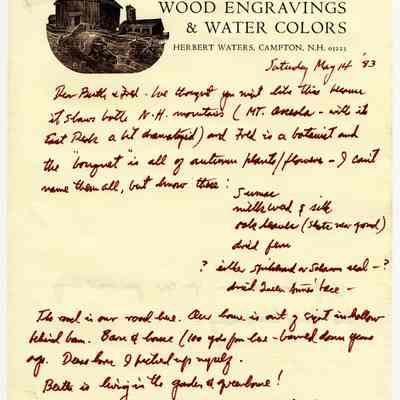 WOOD ENGRAVINGS
& WATER COLORS
HERBERT WATERS, CAMPTON, N.H. 03223
Saturday May 14 '83
Dear Barth & Fred - We thought you might like this because
it shows both N.H. mountains (MT. Osceola - with its
East Peak a bit dramatized) and Fred is a botanist and
the "bouquet" is all of autumn plants/flowers - I can't
name them all, but know these:
Sumac
milkweed & silk
oak leaves (State near pond)
dried fern
? either spikenard or Solomon seal - ?
dried Queen Anne's lace -
The road is our road here. Our home is out of sight in hollow
behind barn. Barn & house (100 yds from here - burned down years
ago. Deas love I picked up myself.
Barth is living in the garden & greenhouse!